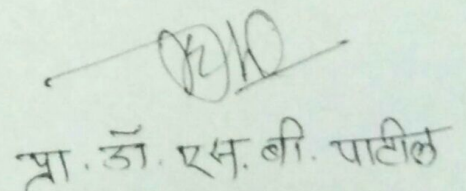 प्रा. डॉ. एस. बी. पाटील